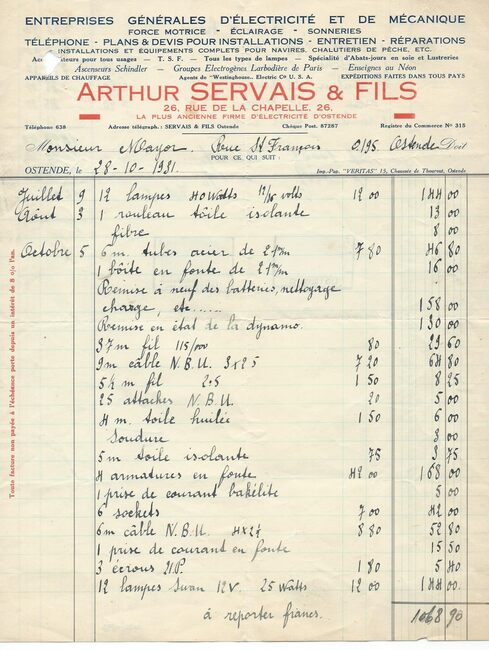 ENTREPRISES GÉNÉRALES D'ÉLECTRICITÉ ET DE MÉCANIQUE
FORCE MOTRICE - ÉCLAIRAGE - SONNERIES
TÉLÉPHONE - PLANS & DEVIS POUR INSTALLATIONS - ENTRETIEN - RÉPARATIONS
INSTALLATIONS ET ÉQUIPEMENTS COMPLETS POUR NAVIRES, CHALUTIERS DE PÊCHE, ETC.
pour tous usages — T. S. F. — Tous les types de lampes — Spécialité d'Abats-jours en soie et Lustreries
Ascenseurs Schindler — Groupes Electrogènes Larbodière de Paris — Enseignes au Néon
APPAREILS DE CHAUFFAGE Agents de "Westinghouse" Electric Co U. S. A. EXPÉDITIONS FAITES DANS TOUS PAYS
ARTHUR SERVAIS & FILS
26, RUE DE LA CHAPELLE, 26,
LA PLUS ANCIENNE FIRME D'ÉLECTRICITÉ D'OSTENDE
Téléphone 638 Adresse télégraph.: SERVAIS & FILS Ostende Chèque Post. 87267 Registre du Commerce No 315
Monsieur Mayor. Rue St François 0/95 Ostende Doit
POUR CE QUI SUIT :
OSTENDE, le 28-10-1931. Imp.-Pap. "VERITAS" 15, Chaussée de Thourout, Ostende
Juillet 9 12 lampes 40 Watts 12/16 volts 12 00 144 00
Août 3 1 rouleau toile isolante 13 00
fibre 8 00
Octobre 5 6 m. tubes acier de 21 mm 7 80 46 80
1 boîte en fonte de 21 mm 16 00
Remise à neuf des batteries, nettoyage
charge, etc..... 158 00
Remise en état de la dynamo. 130 00
37 m fil 80 29 60
9 m câble N.B.U. 3 x 25 7 20 64 80
5 ½ m fil 2.5 1 50 8 25
25 attaches N.B.U. 20 5 00
4 m. toile huilée 1 50 6 00
Soudure 3 00
5 m toile isolante 75 3 75
4 armatures en fonte 42 00 168 00
1 prise de courant bakélite 5 00
6 sockets 7 00 42 00
6 m câble N.B.U. 4 x 2½ 8 80 52 80
1 prise de courant en fonte 15 50
3 écrous 1 80 5 40
12 lampes Swan 12V. 25 Watts 12 00 144 00
à reporter francs. 1068 90
Toute facture non payée à l'échéance porte depuis un intérêt de 8 o/o l'an.